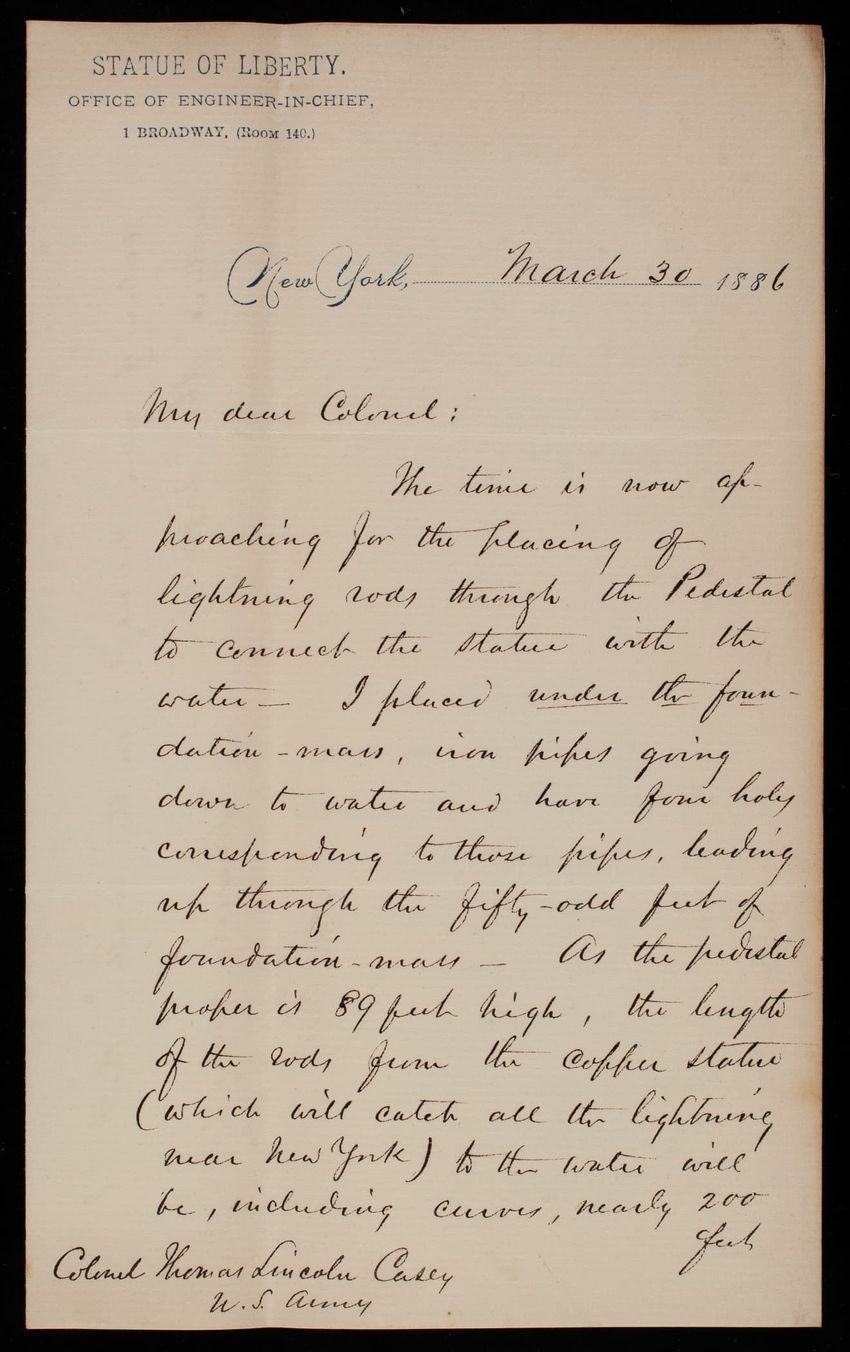 STATUE OF LIBERTY.
OFFICE OF ENGINEER-IN-CHIEF,
1 BROADWAY, (Room 140.)
New York, March 30 1886
My dear Colonel:
The time is now ap-
proaching for the placing of
lightning rods through the Pedestal
to connect the statue with the
water — I placed under the foun-
dation-mass, iron pipes going
down to water and have four holes
corresponding to those pipes, leading
up through the fifty-odd feet of
foundation-mass — As the pedestal
proper is 89 feet high, the length
of the rods from the copper statue
(which will catch all the lightning
near New York) to the water will
be, including curves, nearly 200
feet
Colonel Thomas Lincoln Casey
U.S. Army